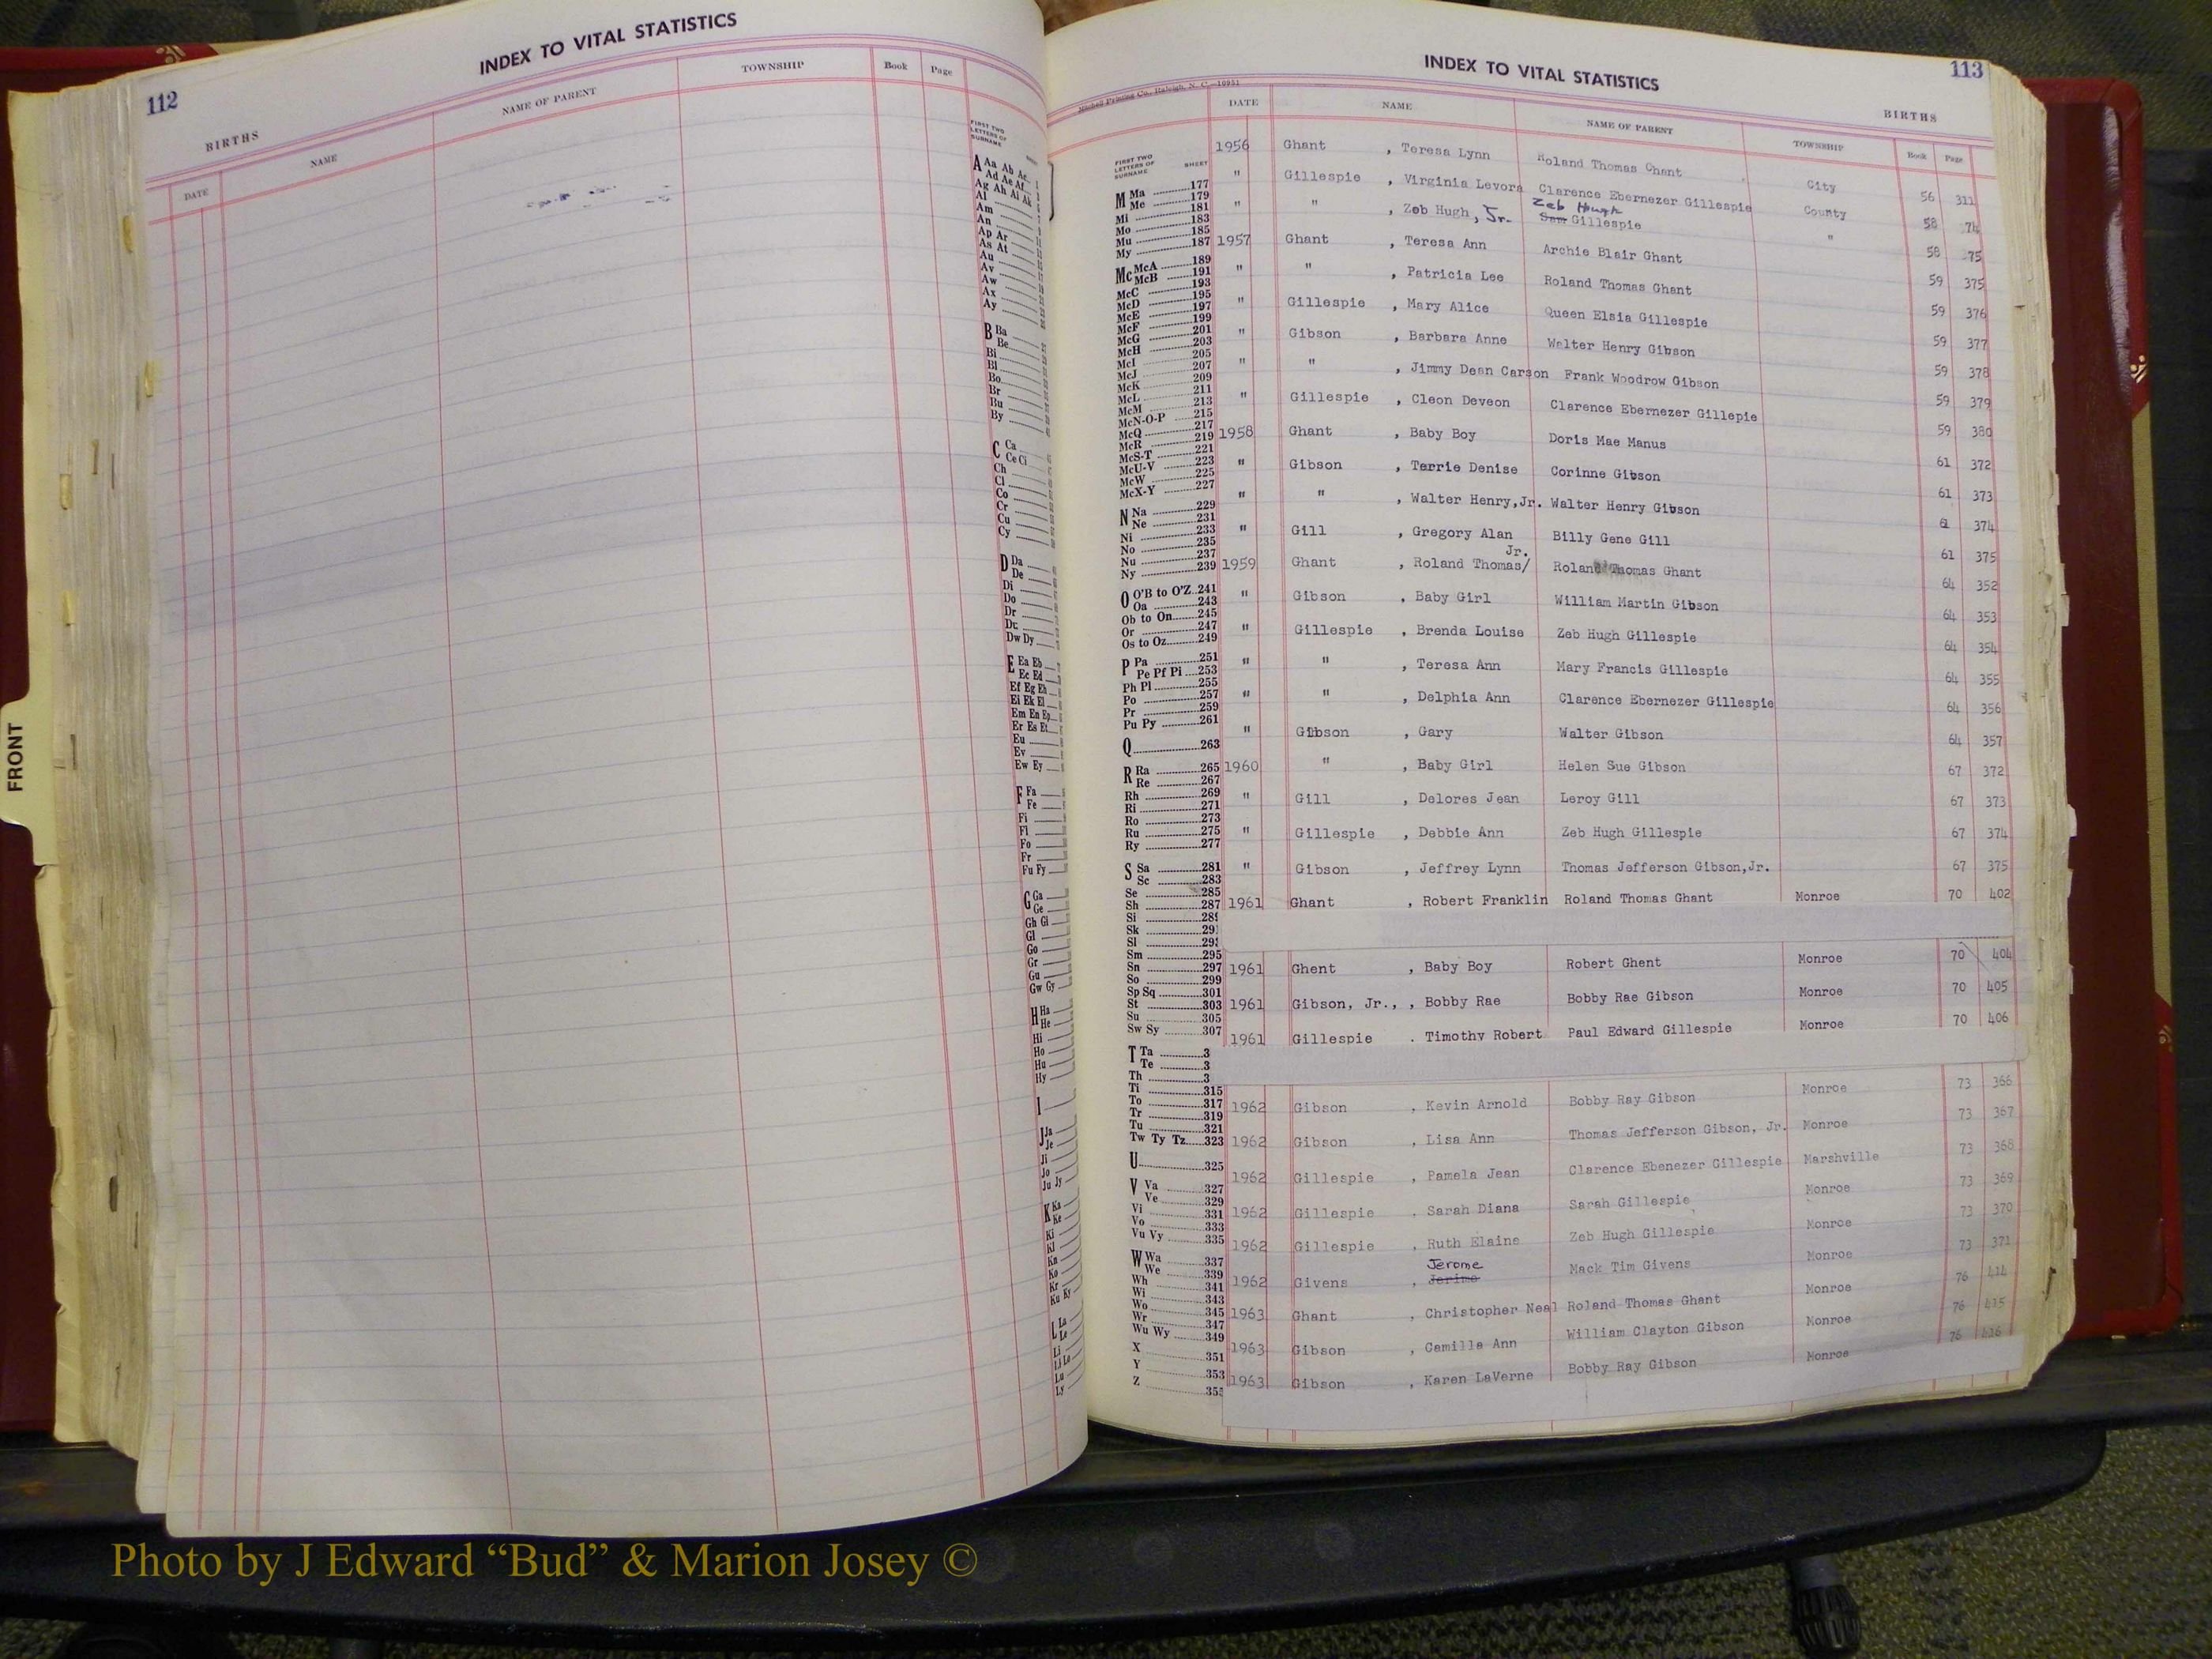 INDEX TO VITAL STATISTICS
112
BIRTHS
DATE NAME NAME OF PARENT TOWNSHIP Book Page
FIRST TWO LETTERS OF SURNAME
A Aa Ab Ac
Ad Ae Af
Ag Ah Ai Ak
Al
Am
An
Ap Ar
As At
Au
Av
Aw
Ax
Ay
B Ba
Be
Bi
Bl
Bo
Br
Bu
By
C Ca
Ce Ci
Ch
Cl
Co
Cr
Cu
Cy
D Da
De
Di
Do
Dr
Du
Dw Dy
E Ea Eb
Ec Ed
Ef Eg Eh
Ei Ek El
Em En Ep
Er Es Et
Eu
Ev
Ew Ey
F Fa
Fe
Fi
Fl
Fo
Fr
Fu Fy
G Ga
Ge
Gh Gi
Gl
Go
Gr
Gu
Gw Gy
H Ha
He
Hi
Ho
Hu
Hy
I
J Ja
Je
Ji
Jo
Ju Jy
K Ka
Ke
Ki
Kl
Kn
Ko
Kr
Ku Ky
L La
Le
Li
Ll Lo
Lu
Ly
FRONT
INDEX TO VITAL STATISTICS
113
Mitchell Printing Co., Raleigh, N. C.—10951
BIRTHS
DATE NAME NAME OF PARENT TOWNSHIP Book Page
FIRST TWO LETTERS OF SURNAME SHEET
M Ma 177
Me 179
Mi 181
Mo 183
Mu 185
My 187
Mc McA 189
McB 191
McC 193
McD 195
McE 197
McF 199
McG 201
McH 203
McI 205
McJ 207
McK 209
McL 211
McM 213
McN-O-P 215
McQ 217
McR 219
McS-T 221
McU-V 223
McW 225
McX-Y 227
N Na 229
Ne 231
Ni 233
No 235
Nu 237
Ny 239
O O'B to O'Z 241
Oa 243
Ob to On 245
Or 247
Os to Oz 249
P Pa 251
Pe Pf Pi 253
Ph Pl 255
Po 257
Pr 259
Pu Py 261
Q 263
R Ra 265
Re 267
Rh 269
Ri 271
Ro 273
Ru 275
Ry 277
S Sa 281
Sc 283
Se 285
Sh 287
Si
Sk
Sl
Sm 295
Sn 297
So 299
Sp Sq 301
St 303
Su 305
Sw Sy 307
T Ta 3
Te 3
Th 3
Ti 315
To 317
Tr 319
Tu 321
Tw Ty Tz 323
U 325
V Va 327
Ve 329
Vi 331
Vo 333
Vu Vy 335
W Wa 337
We 339
Wh 341
Wi 343
Wo 345
Wr 347
Wu Wy 349
X 351
Y 353
Z 355
1956 Ghant , Teresa Lynn Roland Thomas Ghant City 56 311
" Gillespie , Virginia Levora Clarence Ebernezer Gillespie County 58 74
" " , Zeb Hugh, Jr. Zeb Hugh Sam Gillespie " 58 75
1957 Ghant , Teresa Ann Archie Blair Ghant 59 375
" " , Patricia Lee Roland Thomas Ghant 59 376
" Gillespie , Mary Alice Queen Elsia Gillespie 59 377
" Gibson , Barbara Anne Walter Henry Gibson 59 378
" " , Jimmy Dean Carson Frank Woodrow Gibson 59 379
" Gillespie , Cleon Deveon Clarence Ebernezer Gillepie 59 380
1958 Ghant , Baby Boy Doris Mae Manus 61 372
" Gibson , Terrie Denise Corinne Gibson 61 373
" " , Walter Henry,Jr. Walter Henry Gibson 61 374
" Gill , Gregory Alan Billy Gene Gill 61 375
1959 Ghant , Roland Thomas/ Jr. Roland Thomas Ghant 64 352
" Gibson , Baby Girl William Martin Gibson 64 353
" Gillespie , Brenda Louise Zeb Hugh Gillespie 64 354
" " , Teresa Ann Mary Francis Gillespie 64 355
" " , Delphia Ann Clarence Ebernezer Gillespie 64 356
" Gibson , Gary Walter Gibson 64 357
1960 " , Baby Girl Helen Sue Gibson 67 372
" Gill , Delores Jean Leroy Gill 67 373
" Gillespie , Debbie Ann Zeb Hugh Gillespie 67 374
" Gibson , Jeffrey Lynn Thomas Jefferson Gibson,Jr. 67 375
1961 Ghant , Robert Franklin Roland Thomas Ghant Monroe 70 402
1961 Ghent , Baby Boy Robert Ghent Monroe 70 404
1961 Gibson, Jr., , Bobby Rae Bobby Rae Gibson Monroe 70 405
1961 Gillespie . Timothy Robert Paul Edward Gillespie Monroe 70 406
1962 Gibson , Kevin Arnold Bobby Ray Gibson Monroe 73 366
1962 Gibson , Lisa Ann Thomas Jefferson Gibson, Jr. Monroe 73 367
1962 Gillespie , Pamela Jean Clarence Ebenezer Gillespie Marshville 73 368
1962 Gillespie , Sarah Diana Sarah Gillespie Monroe 73 369
1962 Gillespie , Ruth Elaine Zeb Hugh Gillespie Monroe 73 370
1962 Givens , Jerome Jerime Mack Tim Givens Monroe 73 371
1963 Ghant , Christopher Neal Roland Thomas Ghant Monroe 76 414
1963 Gibson , Camilla Ann William Clayton Gibson Monroe 76 415
1963 Gibson , Karen LaVerne Bobby Ray Gibson Monroe 76 416
Photo by J Edward “Bud” & Marion Josey ©